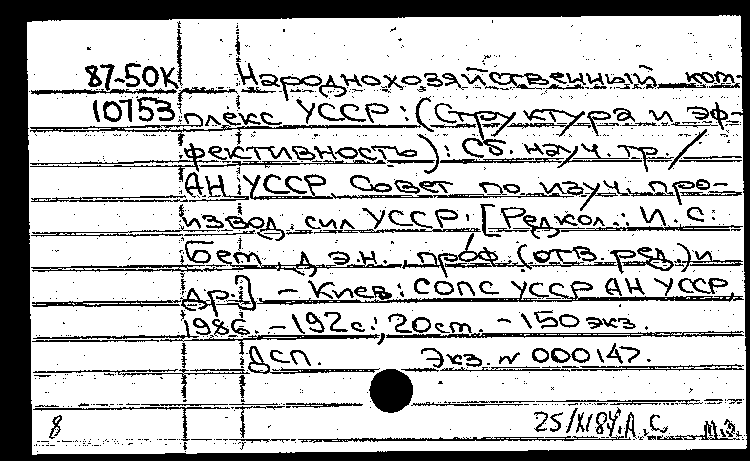 87-50К Народнохозяйственный ком-
10753 плекс УССР: (Структура и эф-
фективность): Сб. науч. тр. /
АН УССР, Совет по изуч. про-
извод. сил УССР; [Редкол.: И. С.
Бет, д.э.н., проф. (отв. ред.) и
др.]. – Киев: СОПС УССР АН УССР,
1986. – 192 с.; 20 cm. – 150 экз.
Дсп. Экз. № 000147.
8